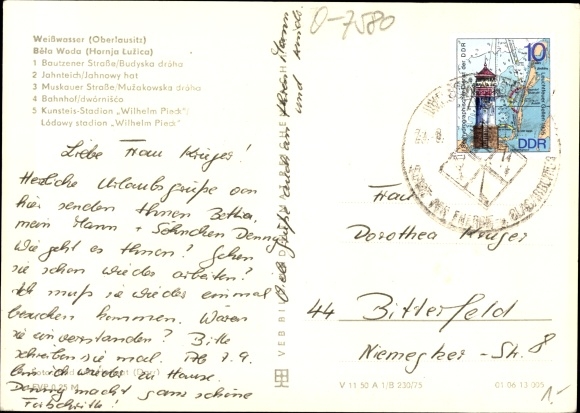 Weißwasser (Oberlausitz)
Běła Woda (Hornja Łužica)
1 Bautzener Straße/Budyska dróha
2 Jahnteich/Jahnowy hat
3 Muskauer Straße/Mužakowska dróha
4 Bahnhof/dwórnišćo
5 Kunsteis-Stadion „Wilhelm Pieck"/
Lódowy stadion „Wilhelm Pieck"
Liebe Frau Krüger!
Herzliche Urlaubsgrüße von
hier senden Ihnen Bettina,
mein Mann + Söhnchen Denny.
Wie geht es Ihnen? Gehen
sie schon wieder arbeiten?
Ich muß sie wieder einmal
besuchen kommen. Wären
sie einverstanden? Bitte
schreiben sie mal. Ab 7.9.
bin ich wieder zu Hause.
Denny macht ganz schöne
Fortschritte!
Viele Grüße auch an Ihren Mann
und
EVP 0,25 M
VEB BILD
0-7580
10
DDR
Frau
Dorothea Krüger
44 Bitterfeld
Niemegker-Str. 8
V 11 50 A 1/B 230/75
01 06 13 005
1,-